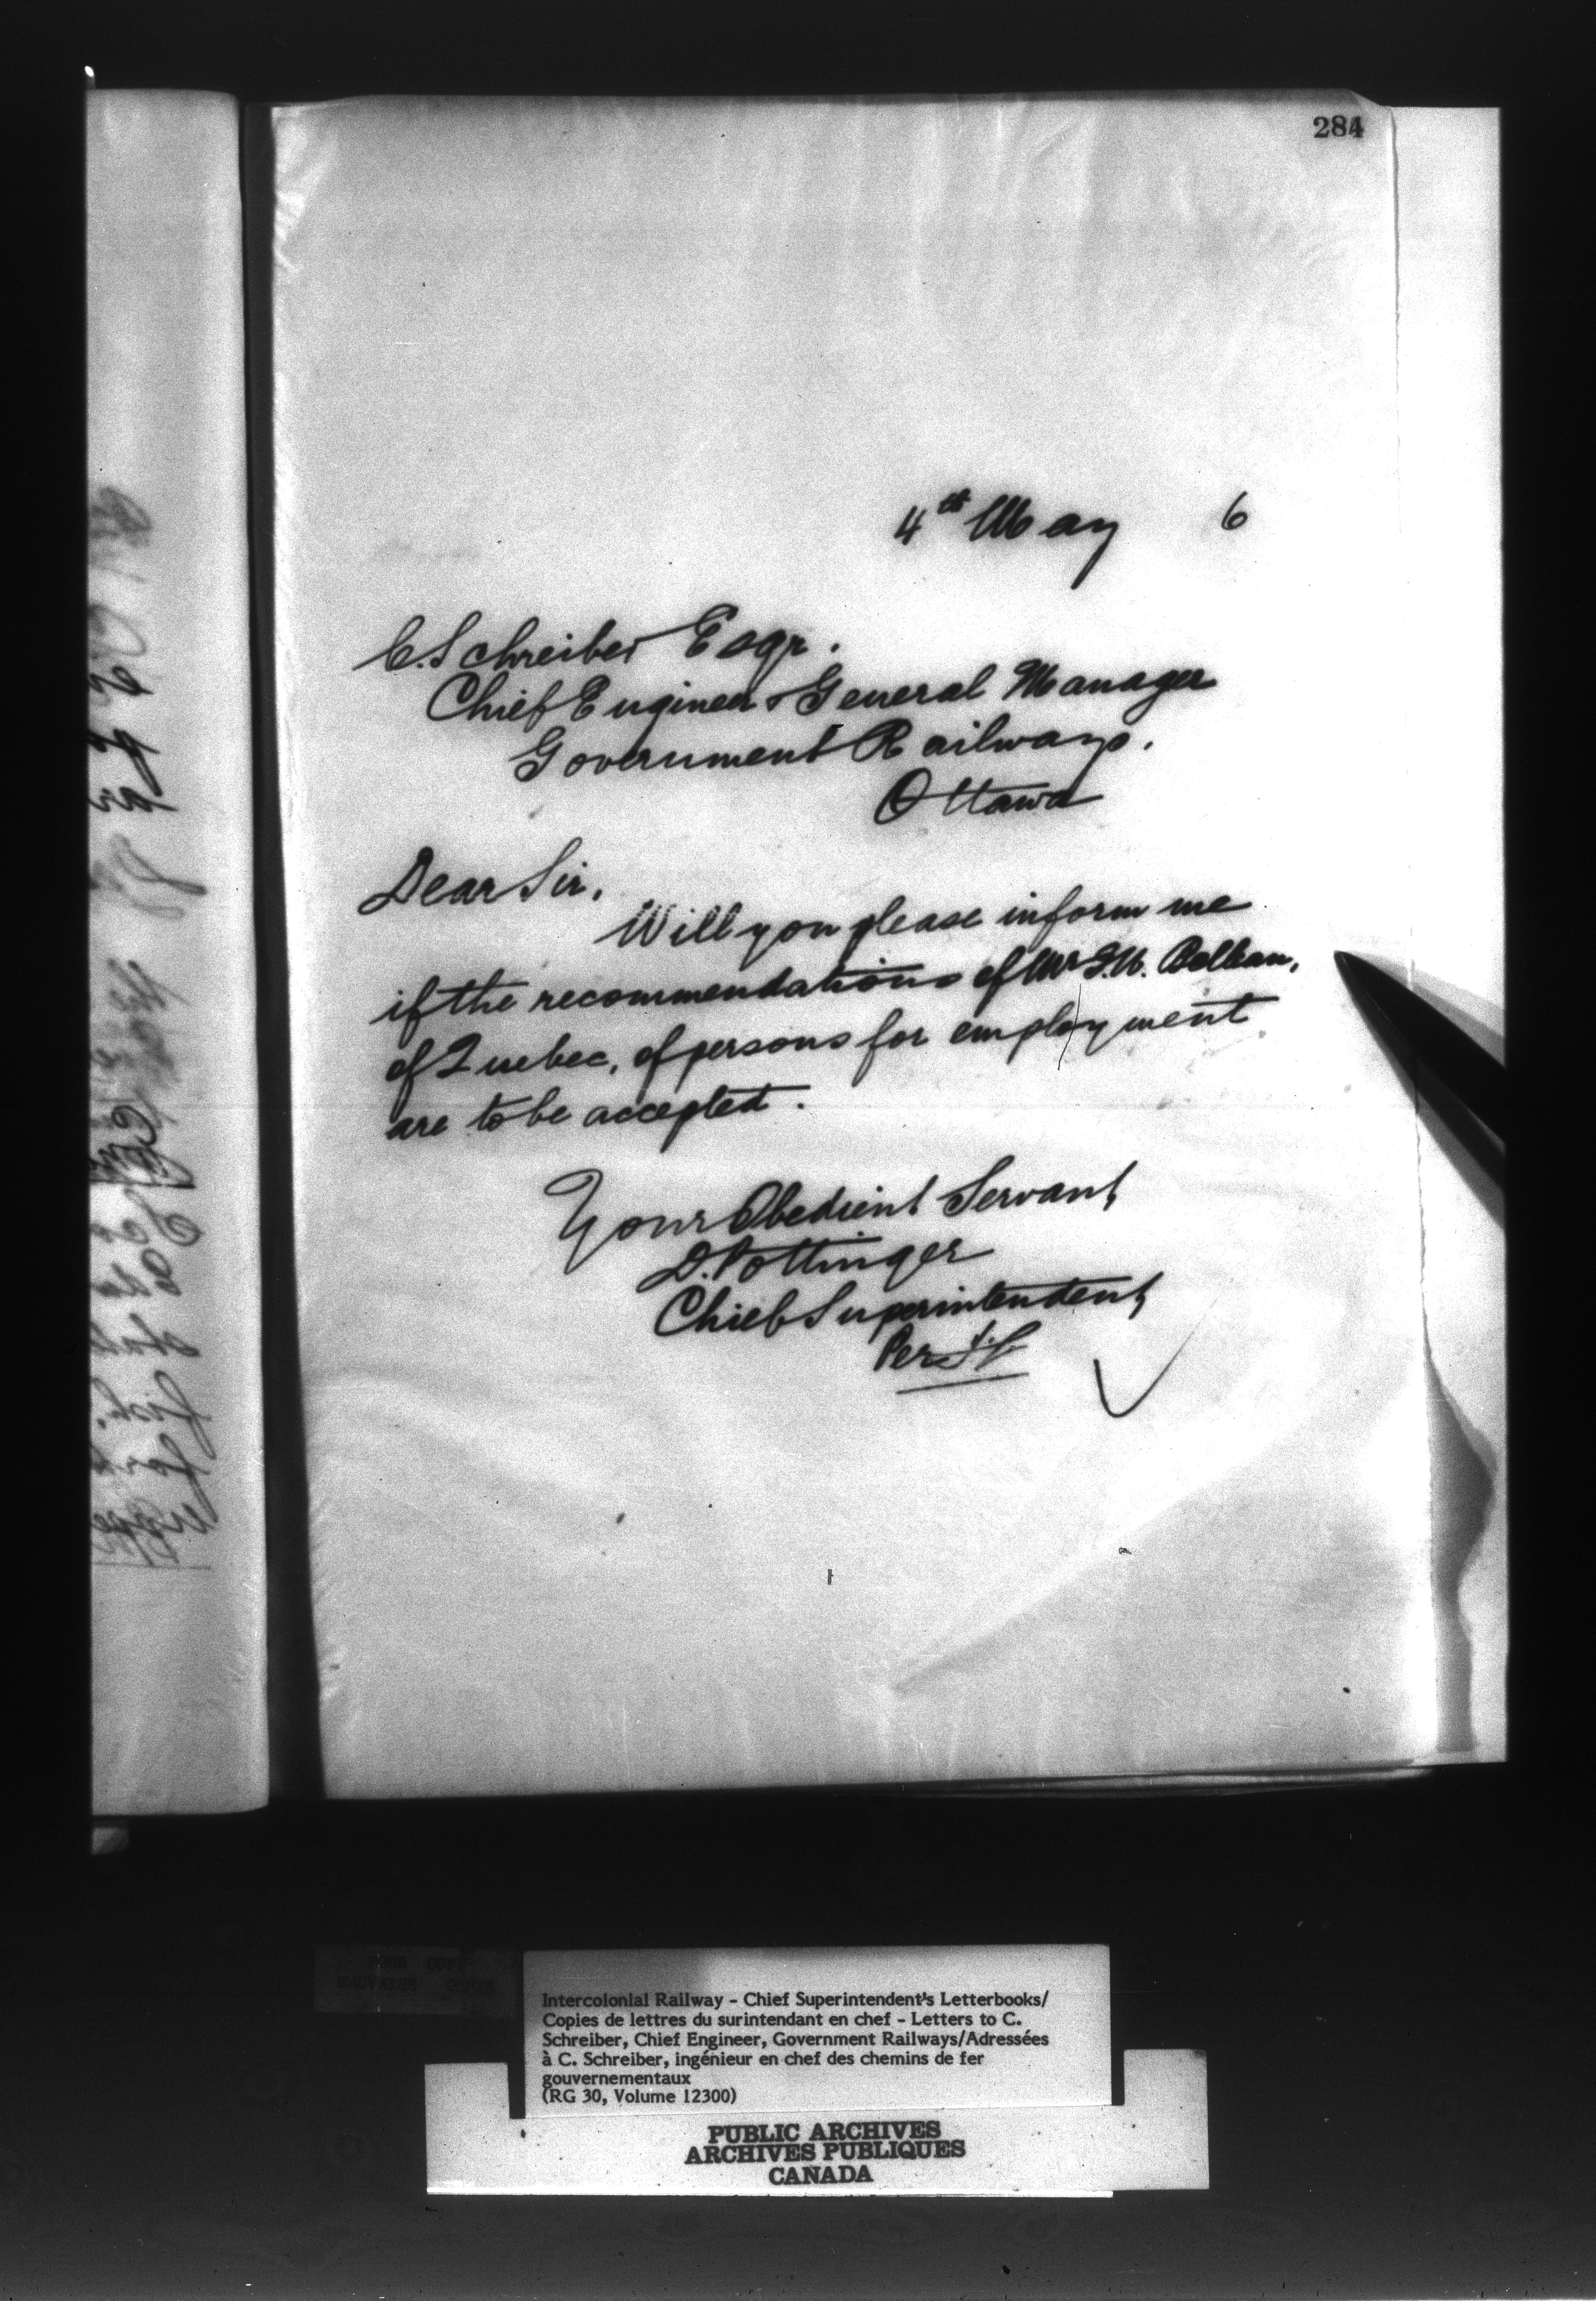 284
4th May 6
C. Schreiber Esqr.
Chief Engineer & General Manager
Government Railways.
Ottawa
Dear Sir,
Will you please inform me
if the recommendations of Mr
of Quebec, of persons for employment
are to be accepted.
Your Obedient Servant
D. Pottinger
Chief Superintendent
Per
Intercolonial Railway - Chief Superintendent's Letterbooks/
Copies de lettres du surintendant en chef - Letters to C.
Schreiber, Chief Engineer, Government Railways/Adressées
à C. Schreiber, ingénieur en chef des chemins de fer
gouvernementaux
(RG 30, Volume 12300)
PUBLIC ARCHIVES
ARCHIVES PUBLIQUES
CANADA